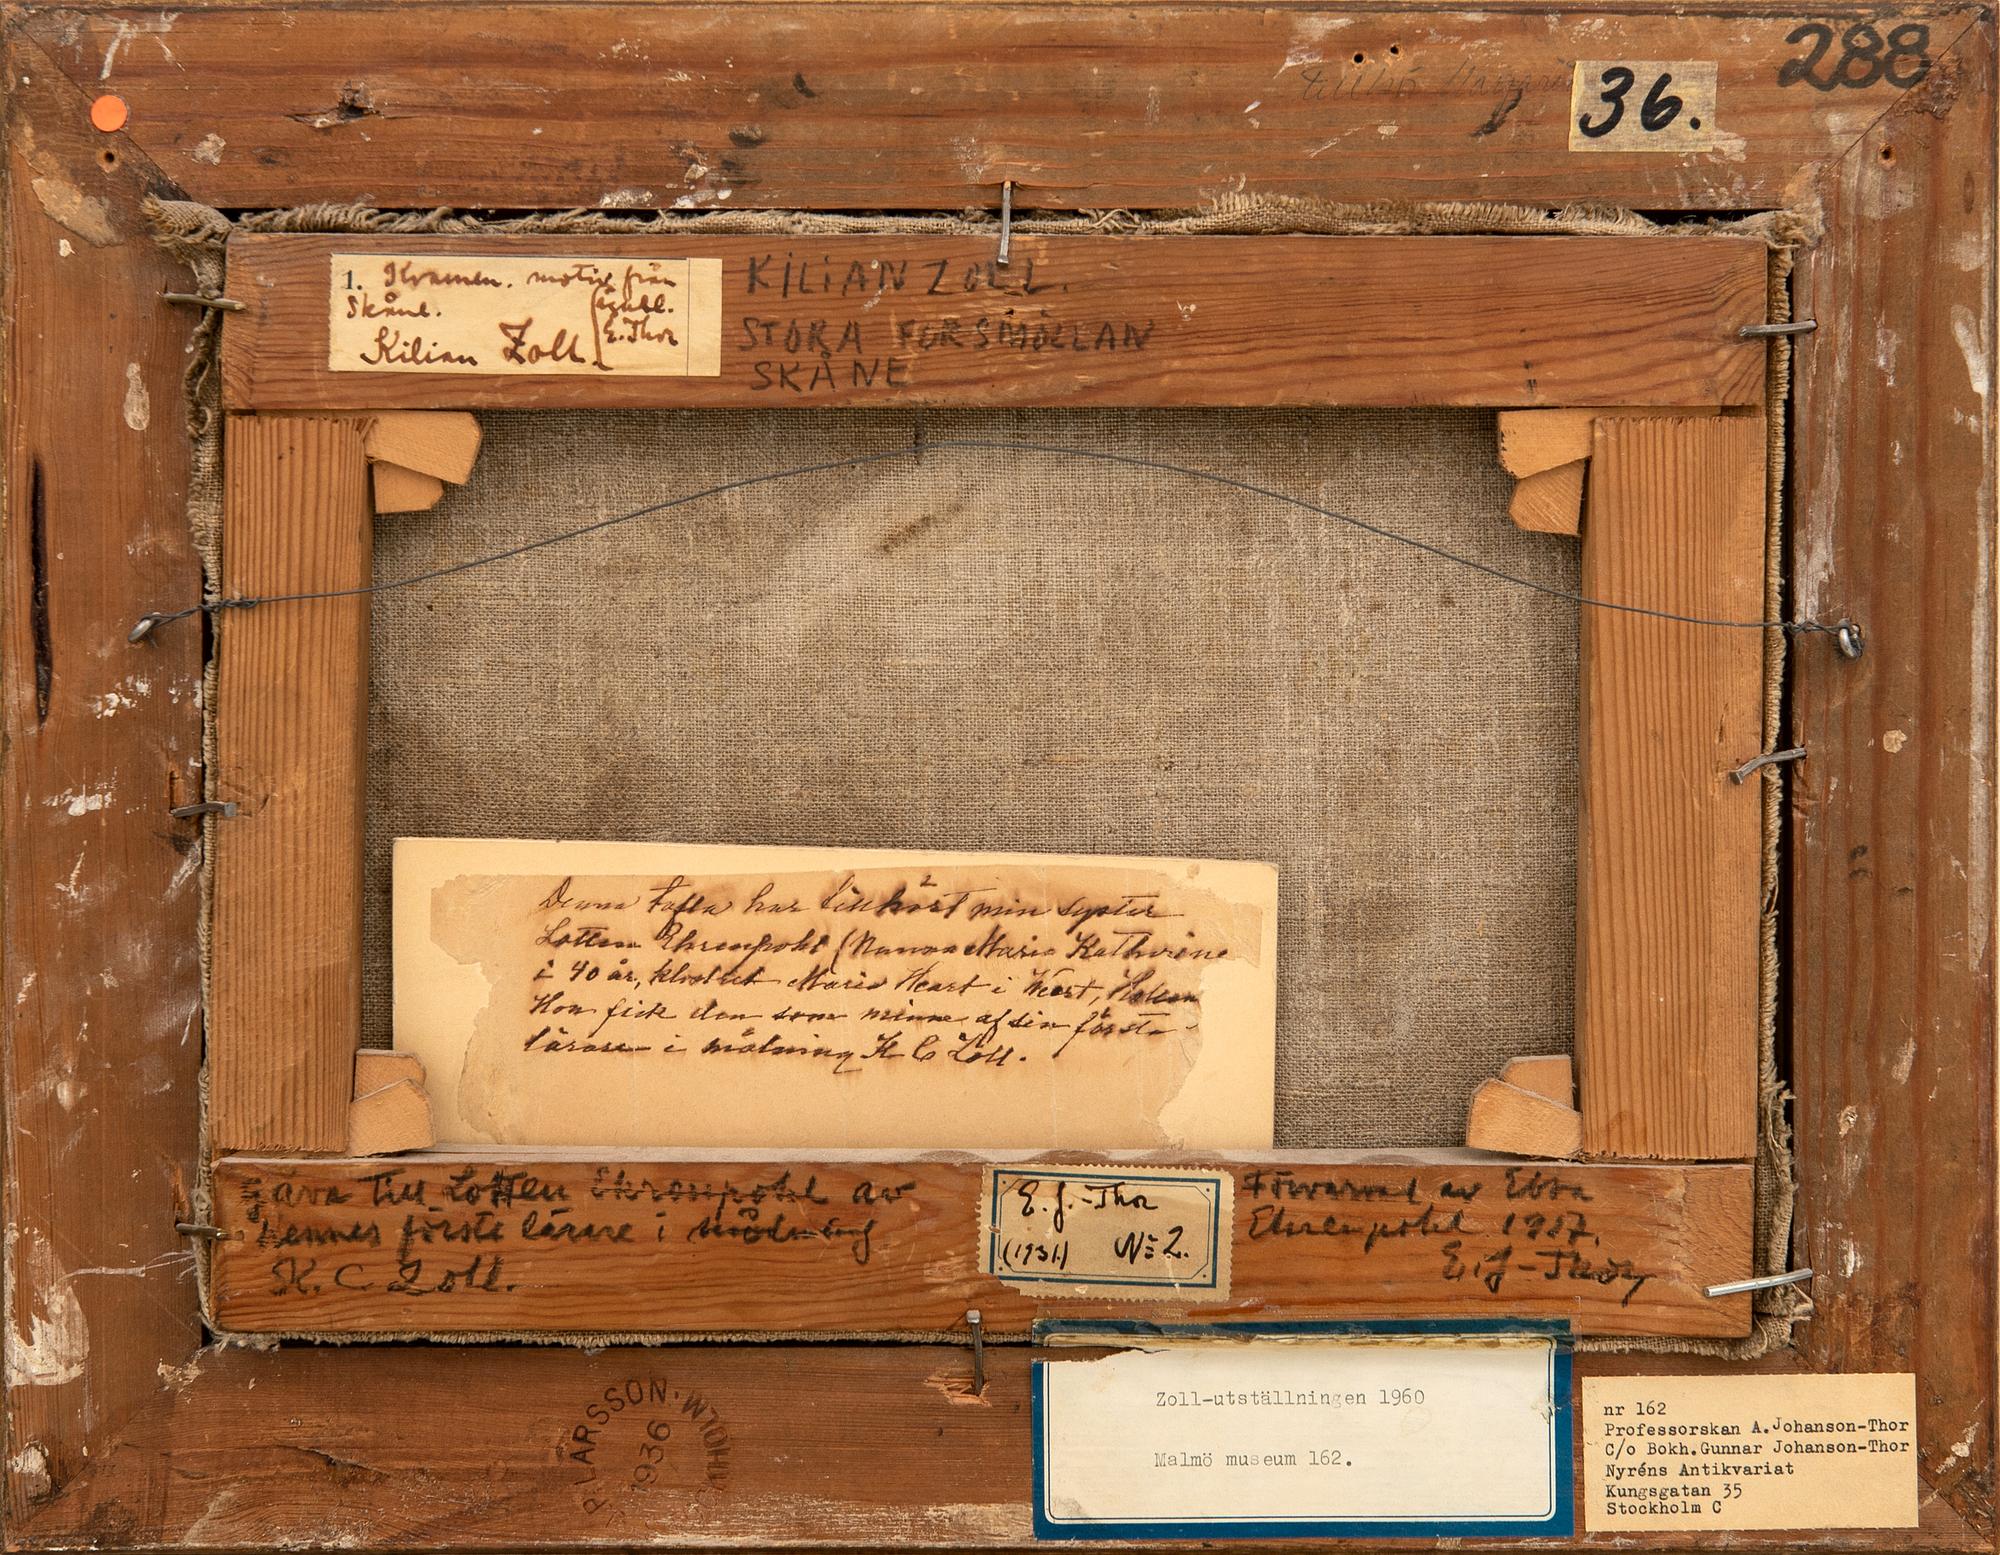 288
36.
1. Kvarnen. motiv från
Skåne.
Kilian Zoll.
E. Thor
KILIAN ZOLL.
STORA FORSMÖLLAN
SKÅNE
Denna tafla har tillhört min syster
Lotten Ehrenpohl (Nanna Maria Kathrine
i 40 år, klostret Maria Heart i Weert, Hollan
Hon fick den som minne af sin första
lärare i målning K C Zoll.
Gåva till Lotten Ehrenpohl av
hennes förste lärare i målning
K. C Zoll.
E. J.-Thor
(1931) No 2.
Förvärvad av Ebba
Ehrenpohl 1917.
E. J-Thor
P. LARSSON.
1936
Zoll-utställningen 1960
Malmö museum 162.
nr 162
Professorskan A.Johanson-Thor
C/o Bokh.Gunnar Johanson-Thor
Nyréns Antikvariat
Kungsgatan 35
Stockholm C